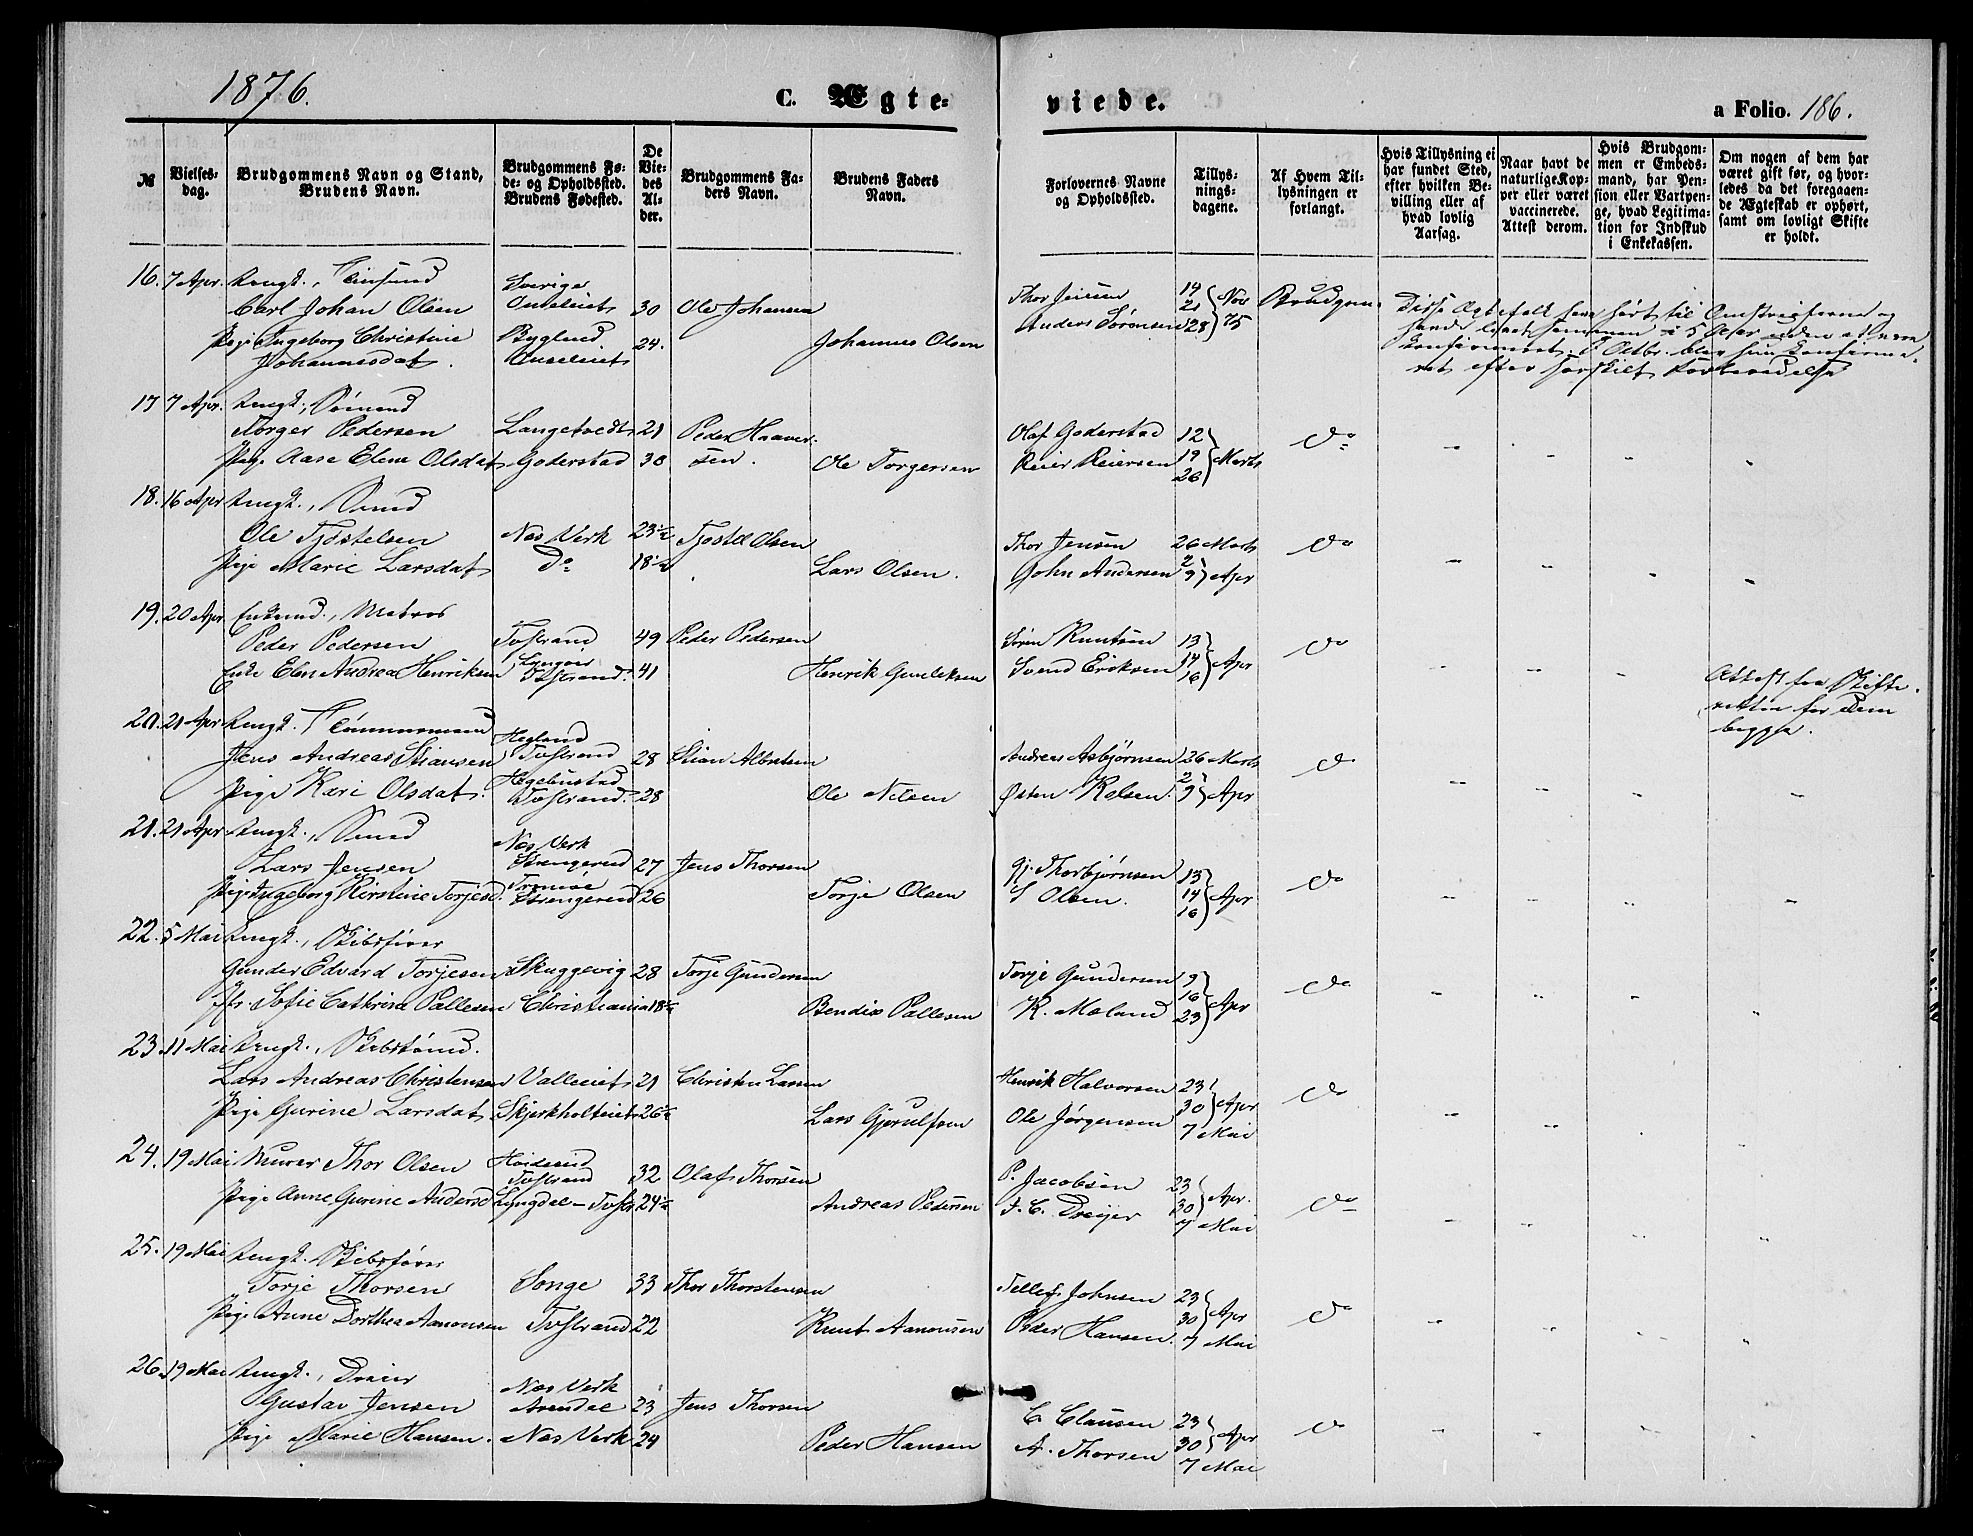 1876.
C. Ægte-
viede.
a Folio. 186.
№
Vielses-
dag.
Brudgommens Navn og Stand,
Brudens Navn.
Brudgommens Fø-
de- og Opholdssted.
Brudens Fødested.
De
Vie-
des
Al-
der.
Brudgommens Fa-
ders Navn.
Brudens Faders
Navn.
Forlovernes Navne
og Opholdssted.
Tillys-
nings-
dagene.
Af Hvem Til-
lysningen er
forlangt.
Hvis Tillysning ei
har fundet Sted,
efter hvilken Be-
villing eller af
hvad lovlig
Aarsag.
Naar havt de
naturlige Kop-
per eller været
vaccinerede.
Attest derom.
Hvis Brudgom-
men er Embeds-
mand, har Pen-
sion eller Vartpen-
ge, hvad Legitima-
tion for Indskud
i Enkekassen.
Om nogen af dem har
været gift før, og hvor-
ledes da det foregaaen-
de Ægteskab er ophørt,
samt om lovligt Skifte
er holdt.
16. 7 Apr. Ungk.,
Carl Johan Olsen 30 Ole Johansen Thor Jensen 14 21 28 Nov 75 Brudgom.
Pige Ingeborg Christine Bygland 24. Johannes Olsen Anders Sørensen
Johannesdat.
17 7 Apr. Ungk., Sømand
Torger Pedersen Langetvedt 21 Peder Haaver- Olaf Goderstad 12 Do
Pige Aase Elene Olsdat Goderstad 30 sen. Ole Torgersen Reier Reiersen 19 26 Marts
18. 16 Apr Ungk., Smed
Ole Tjøstelsen Næs Verk 23½ Tjøstel Olsen Thor Jensen 26 Marts Do
Pige Marie Larsdat Do 18½ Lars Olsen. John Andersen 2 9 Apr
19. 20 Apr Enkemd., Matros
Peder Pedersen Tvestrand 49 Peder Pedersen Søren Knutsen 13 Do
Enke Elen Andrea Henriksen Tvestrand. 41 Henrik Gunleksen Svend Eriksen 14 16 Apr
Attest fra Skifte-
retten for Dem
begge.
20. 21 Apr Ungk. Tømmermand
Jens Andreas Stiansen Hegland Tvestrand 28 Stian Albretsen Andreas Asbjørnsen 26 Marts Do
Pige Kari Olsdat. Hegebustad Tvestrand. 28 Ole Nilsen Østen Kolsen. 2 9 Apr
21. 21 Apr Ungk., Smed
Lars Jensen Næs Verk Strengereid 27 Jens Thorsen Gj. Thorbjørnsen 13 Do
Pige Ingeborg Kirstine Torjesd. Tromøe Strengereid 26 Torje Olsen S Olsen. 14 16 Apr
22. 5 Mai Ungk., Skibsfører
Gunder Edvard Torjesen Skuggevig 28 Torje Gundersen Torje Gundersen 9 Do
Jfr Sofie Cathrine Pallesen Christiania 18½ Bendix Pallesen K. Moland 16 23 Apr
23. 11 Mai Ungk., Skibstømd.
Lars Andreas Christensen Valleeiet 21 Christen Larsen Henrik Halvorsen 23 Do
Pige Gurine Larsdat Skjerkholteiet 26½ Lars Gjerulfsen Ole Jørgensen 30 Apr 7 Mai
24. 19 Mai Murer Thor Olsen Tvestrand 32 Olaf Thorsen P. Jacobsen 23
Pige Anne Gurine Andersd Lyngdal - Tvestr 24½ Andreas Pedersen J. C. Dreijer 30 Apr. 7 Mai Do
25. 19 Mai Ungk. Skibsfører
Torje Thorsen Songe 33 Thor Thorstensen Tellef Johnsen 23 Do
Pige Anne Dorthea Aanonsen Tvestrand 22 Knut Aanonsen Peder Hansen. 30 Apr 7 Mai
26. 19 Mai Ungk., Dreier
Gustav Jensen Næs Verk Arendal 23 Jens Thorsen C. Clausen 23 Do
Pige Marie Hansen. Næs Verk 24 Peder Hansen A. Thorsen 30 Apr 7 Mai